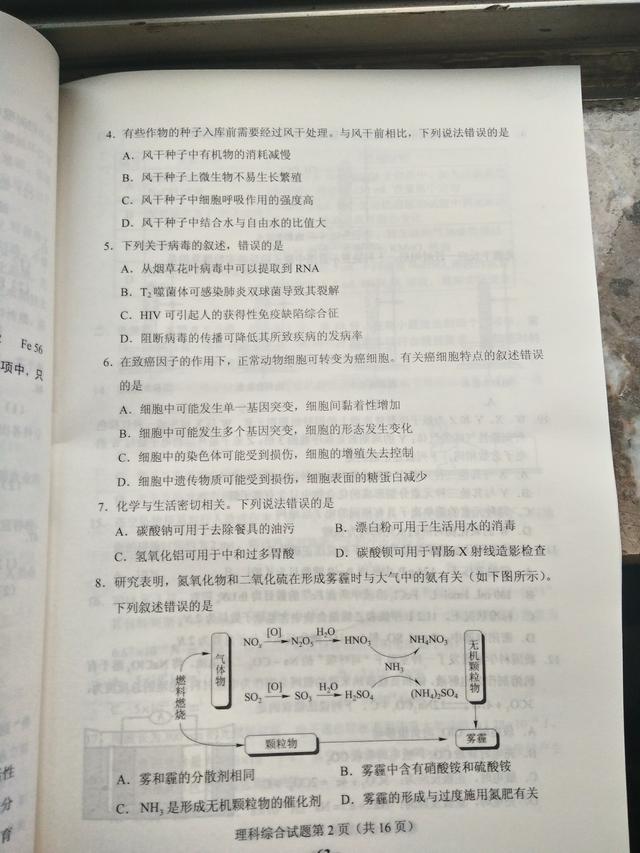 4．有些作物的种子入库前需要经过风干处理。与风干前相比，下列说法错误的是
A．风干种子中有机物的消耗减慢
B．风干种子上微生物不易生长繁殖
C．风干种子中细胞呼吸作用的强度高
D．风干种子中结合水与自由水的比值大
5．下列关于病毒的叙述，错误的是
A．从烟草花叶病毒中可以提取到 RNA
B．T₂噬菌体可感染肺炎双球菌导致其裂解
C．HIV 可引起人的获得性免疫缺陷综合征
D．阻断病毒的传播可降低其所致疾病的发病率
Fe 56
项中，只
6．在致癌因子的作用下，正常动物细胞可转变为癌细胞。有关癌细胞特点的叙述错误
的是
A．细胞中可能发生单一基因突变，细胞间黏着性增加
B．细胞中可能发生多个基因突变，细胞的形态发生变化
C．细胞中的染色体可能受到损伤，细胞的增殖失去控制
D．细胞中遗传物质可能受到损伤，细胞表面的糖蛋白减少
7．化学与生活密切相关。下列说法错误的是
A．碳酸钠可用于去除餐具的油污 B．漂白粉可用于生活用水的消毒
C．氢氧化铝可用于中和过多胃酸 D．碳酸钡可用于胃肠 X 射线造影检查
8．研究表明，氮氧化物和二氧化硫在形成雾霾时与大气中的氨有关（如下图所示）。
下列叙述错误的是
燃料燃烧
气体物
NOₓ [O] N₂O₅ H₂O HNO₃ NH₄NO₃
NH₃
SO₂ [O] SO₃ H₂O H₂SO₄ (NH₄)₂SO₄
无机颗粒物
颗粒物
雾霾
A．雾和霾的分散剂相同 B．雾霾中含有硝酸铵和硫酸铵
C．NH₃是形成无机颗粒物的催化剂 D．雾霾的形成与过度施用氮肥有关
理科综合试题第 2 页（共 16 页）
性
分
育